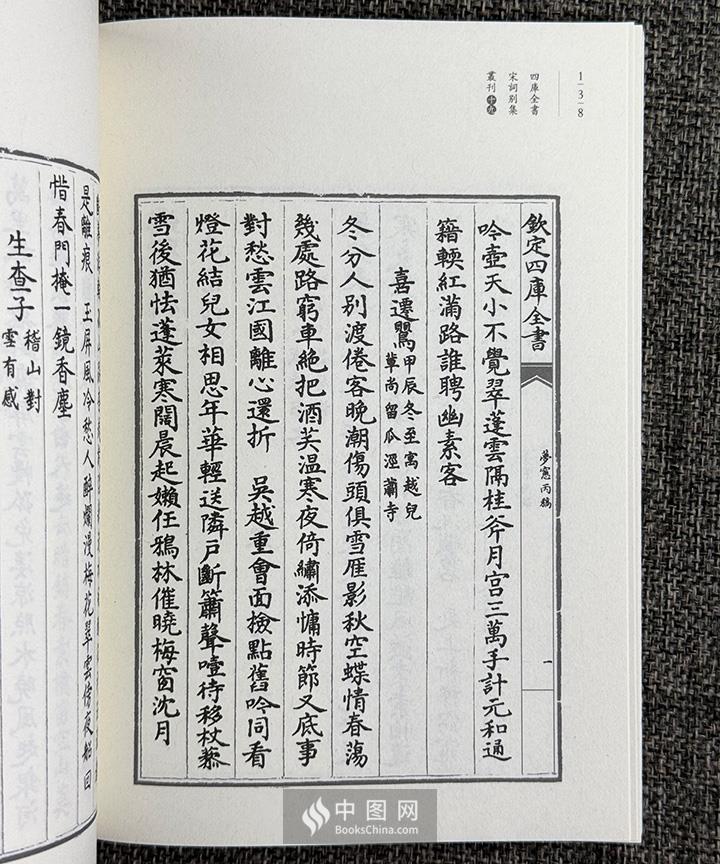 1-3-8
四庫全書
宋詞別集
叢刊 十九
欽定四庫全書
夢窻丙稿
一
吟壺天小不覺翠蓬雲隔桂斧月宫三萬手計元和通
籍輭紅滿路誰聘幽素客
喜遷鶯 甲辰冬至寓越兒
輩尚留瓜涇蕭寺
冬分人别渡倦客晚潮傷頭俱雪雁影秋空蝶情春蕩
幾處路窮車絶把酒共温寒夜倚繡添慵時節又底事
對愁雲江國離心還折 吳越重會面撿點舊吟同看
燈花結兒女相思年華輕送隣户斷簫聲噎待移杖藜
雪後猶怯蓬萊寒闊晨起嬾任鴉林催曉梅窗沈月
是離痕 玉屏風冷愁人醉爛漫梅花翠雲傍夜船回
惜春門掩一鏡香塵
生查子 稽山對
雪有感
中图网
BooksChina.com